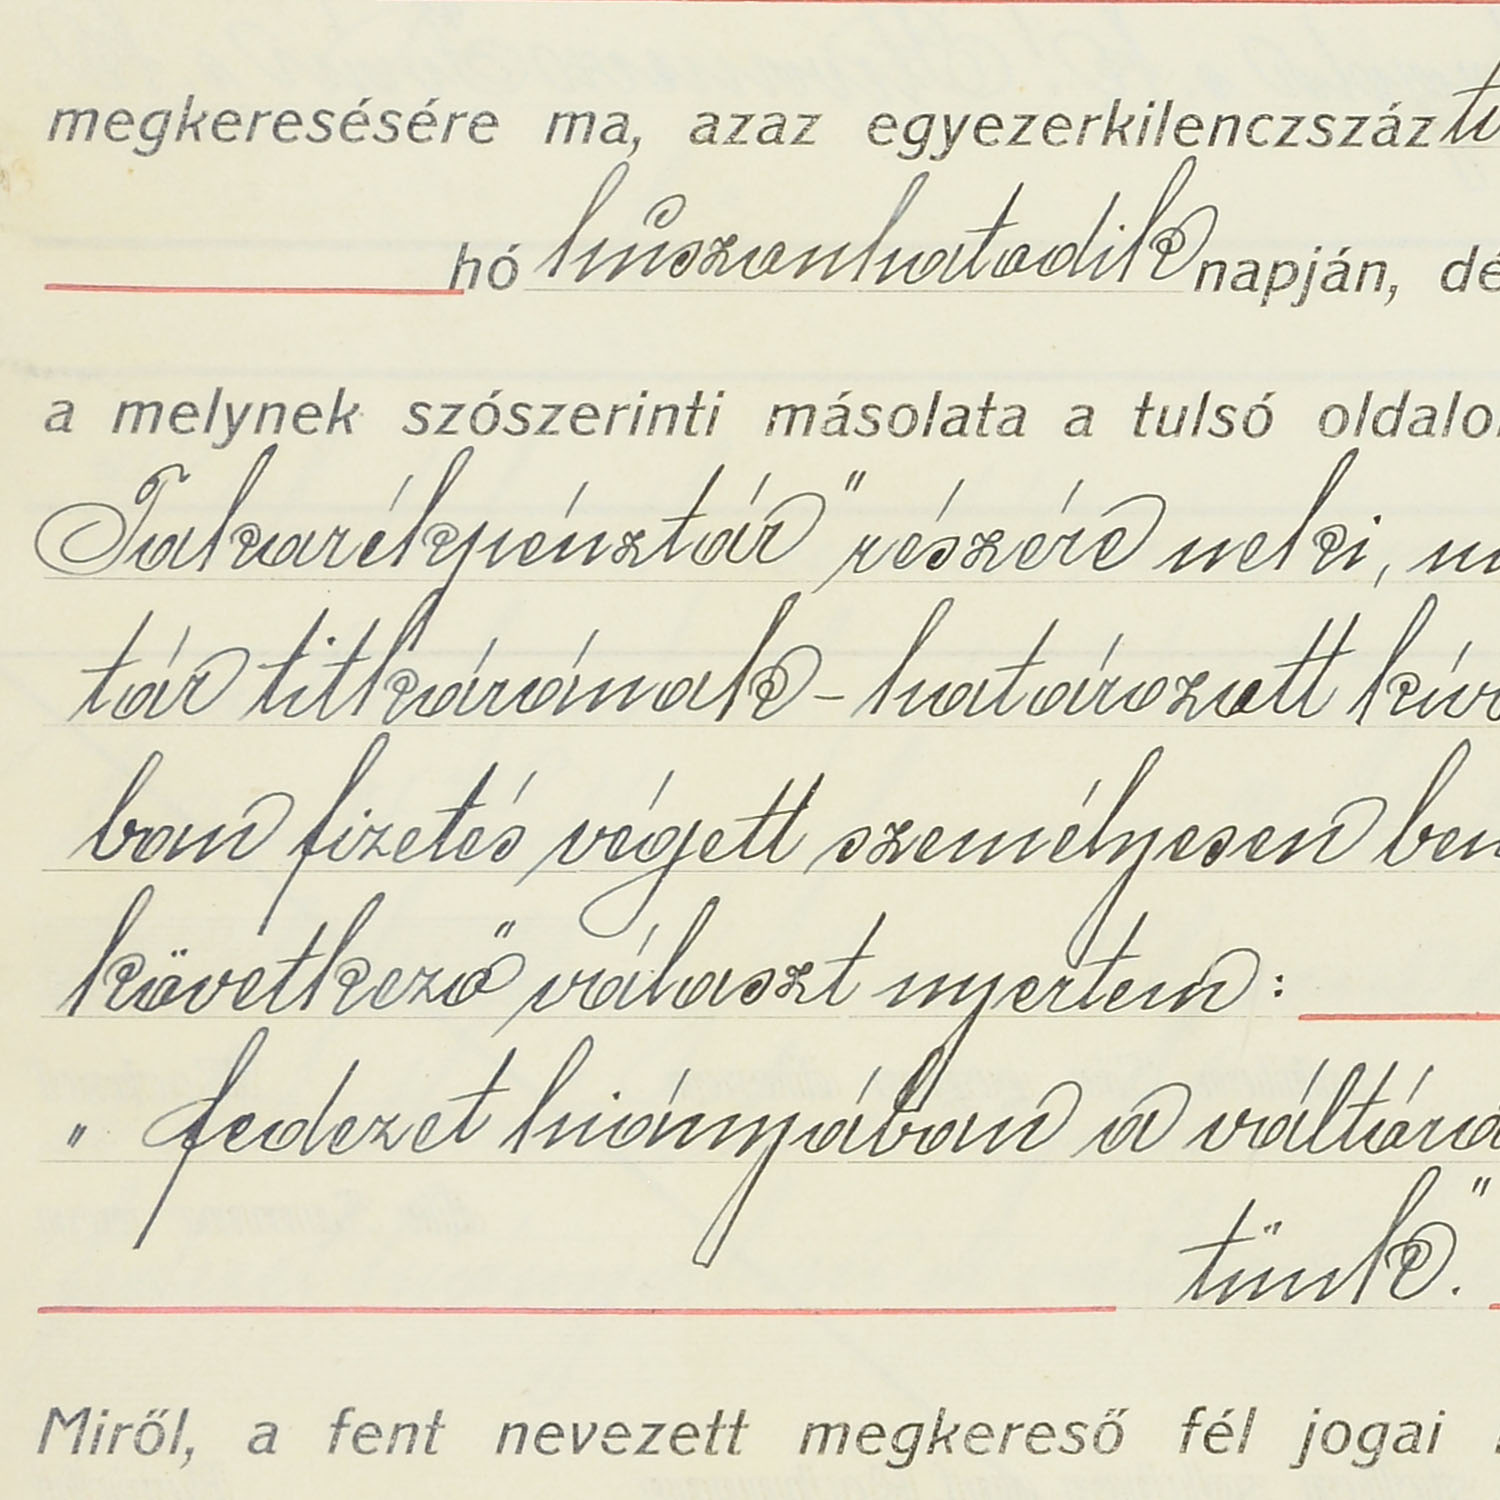 megkeresésére ma, azaz egyezerkilenczszáz
hó húszonhatodik napján, dé
a melynek szószerinti másolata a tulsó oldalo
Takarékpénztár" részére neki,
tár titkárának - határozott kívá
ban fizetés végett személyesen ben
következő választ nyertem:
" fedezet hiányában a váltóra
tünk."
Miről, a fent nevezett megkereső fél jogai